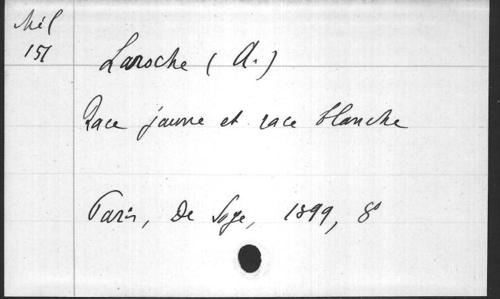 Mél
151
Laroche (A.)
Race jaune et race blanche
Paris, De Soye, 1899, 8°